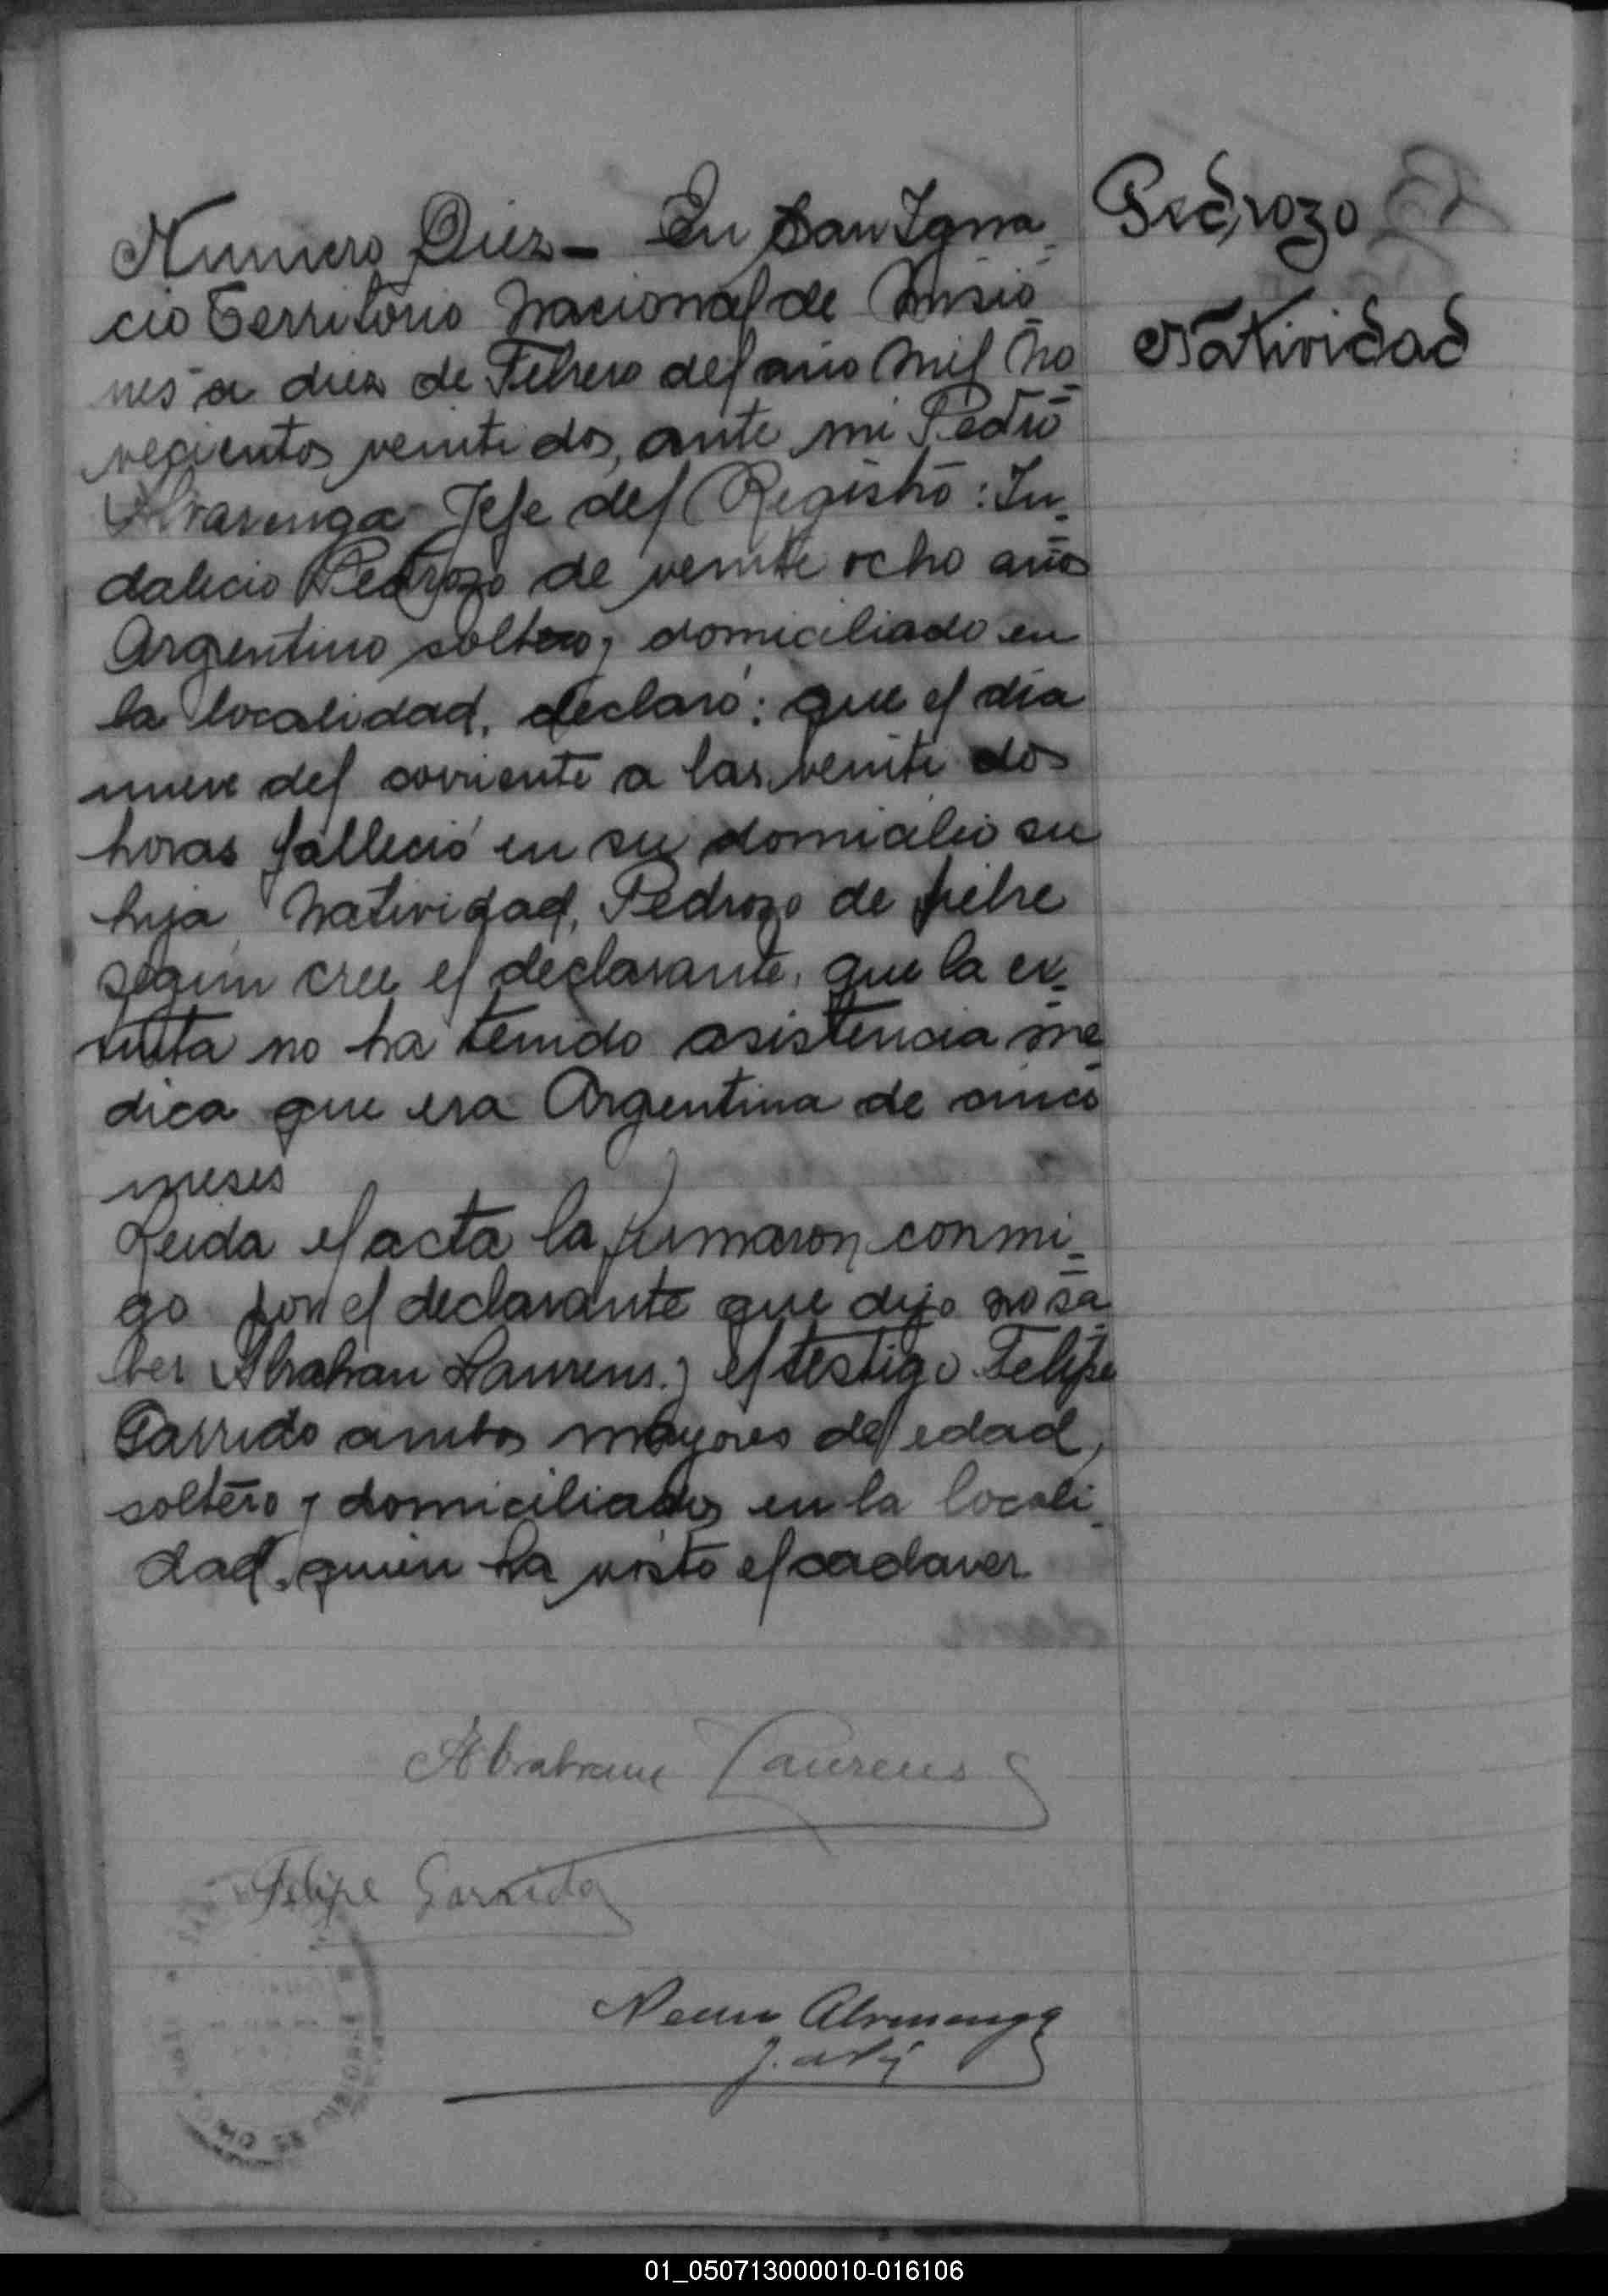 Numero Diez - En San Igna-
cio Territorio Nacional de Misio-
nes a diez de Febrero del año mil no-
vecientos veinte dos, ante mi Pedro
Alvarenga Jefe del Registro: In-
dalecio Pedrozo de veinte ocho años
Argentino soltero, domiciliado en
la localidad, declaró: que el día
nueve del corriente a las veinte dos
horas falleció en su domicilio su
hija Natividad Pedrozo de fiebre
según cree el declarante, que la ex-
tinta no ha tenido asistencia me-
dica que era Argentina de cinco
meses
Leida el acta la firmaron conmi-
go por el declarante que dijo no sa-
ber Abrahan Laurens y el testigo Felipe
Garrido ambos mayores de edad,
soltero y domiciliados en la locali-
dad, quien ha visto el cadaver
Pedrozo
Natividad
Abraham Laurens
Felipe Garrido
Alvarenga
01_050713000010-016106